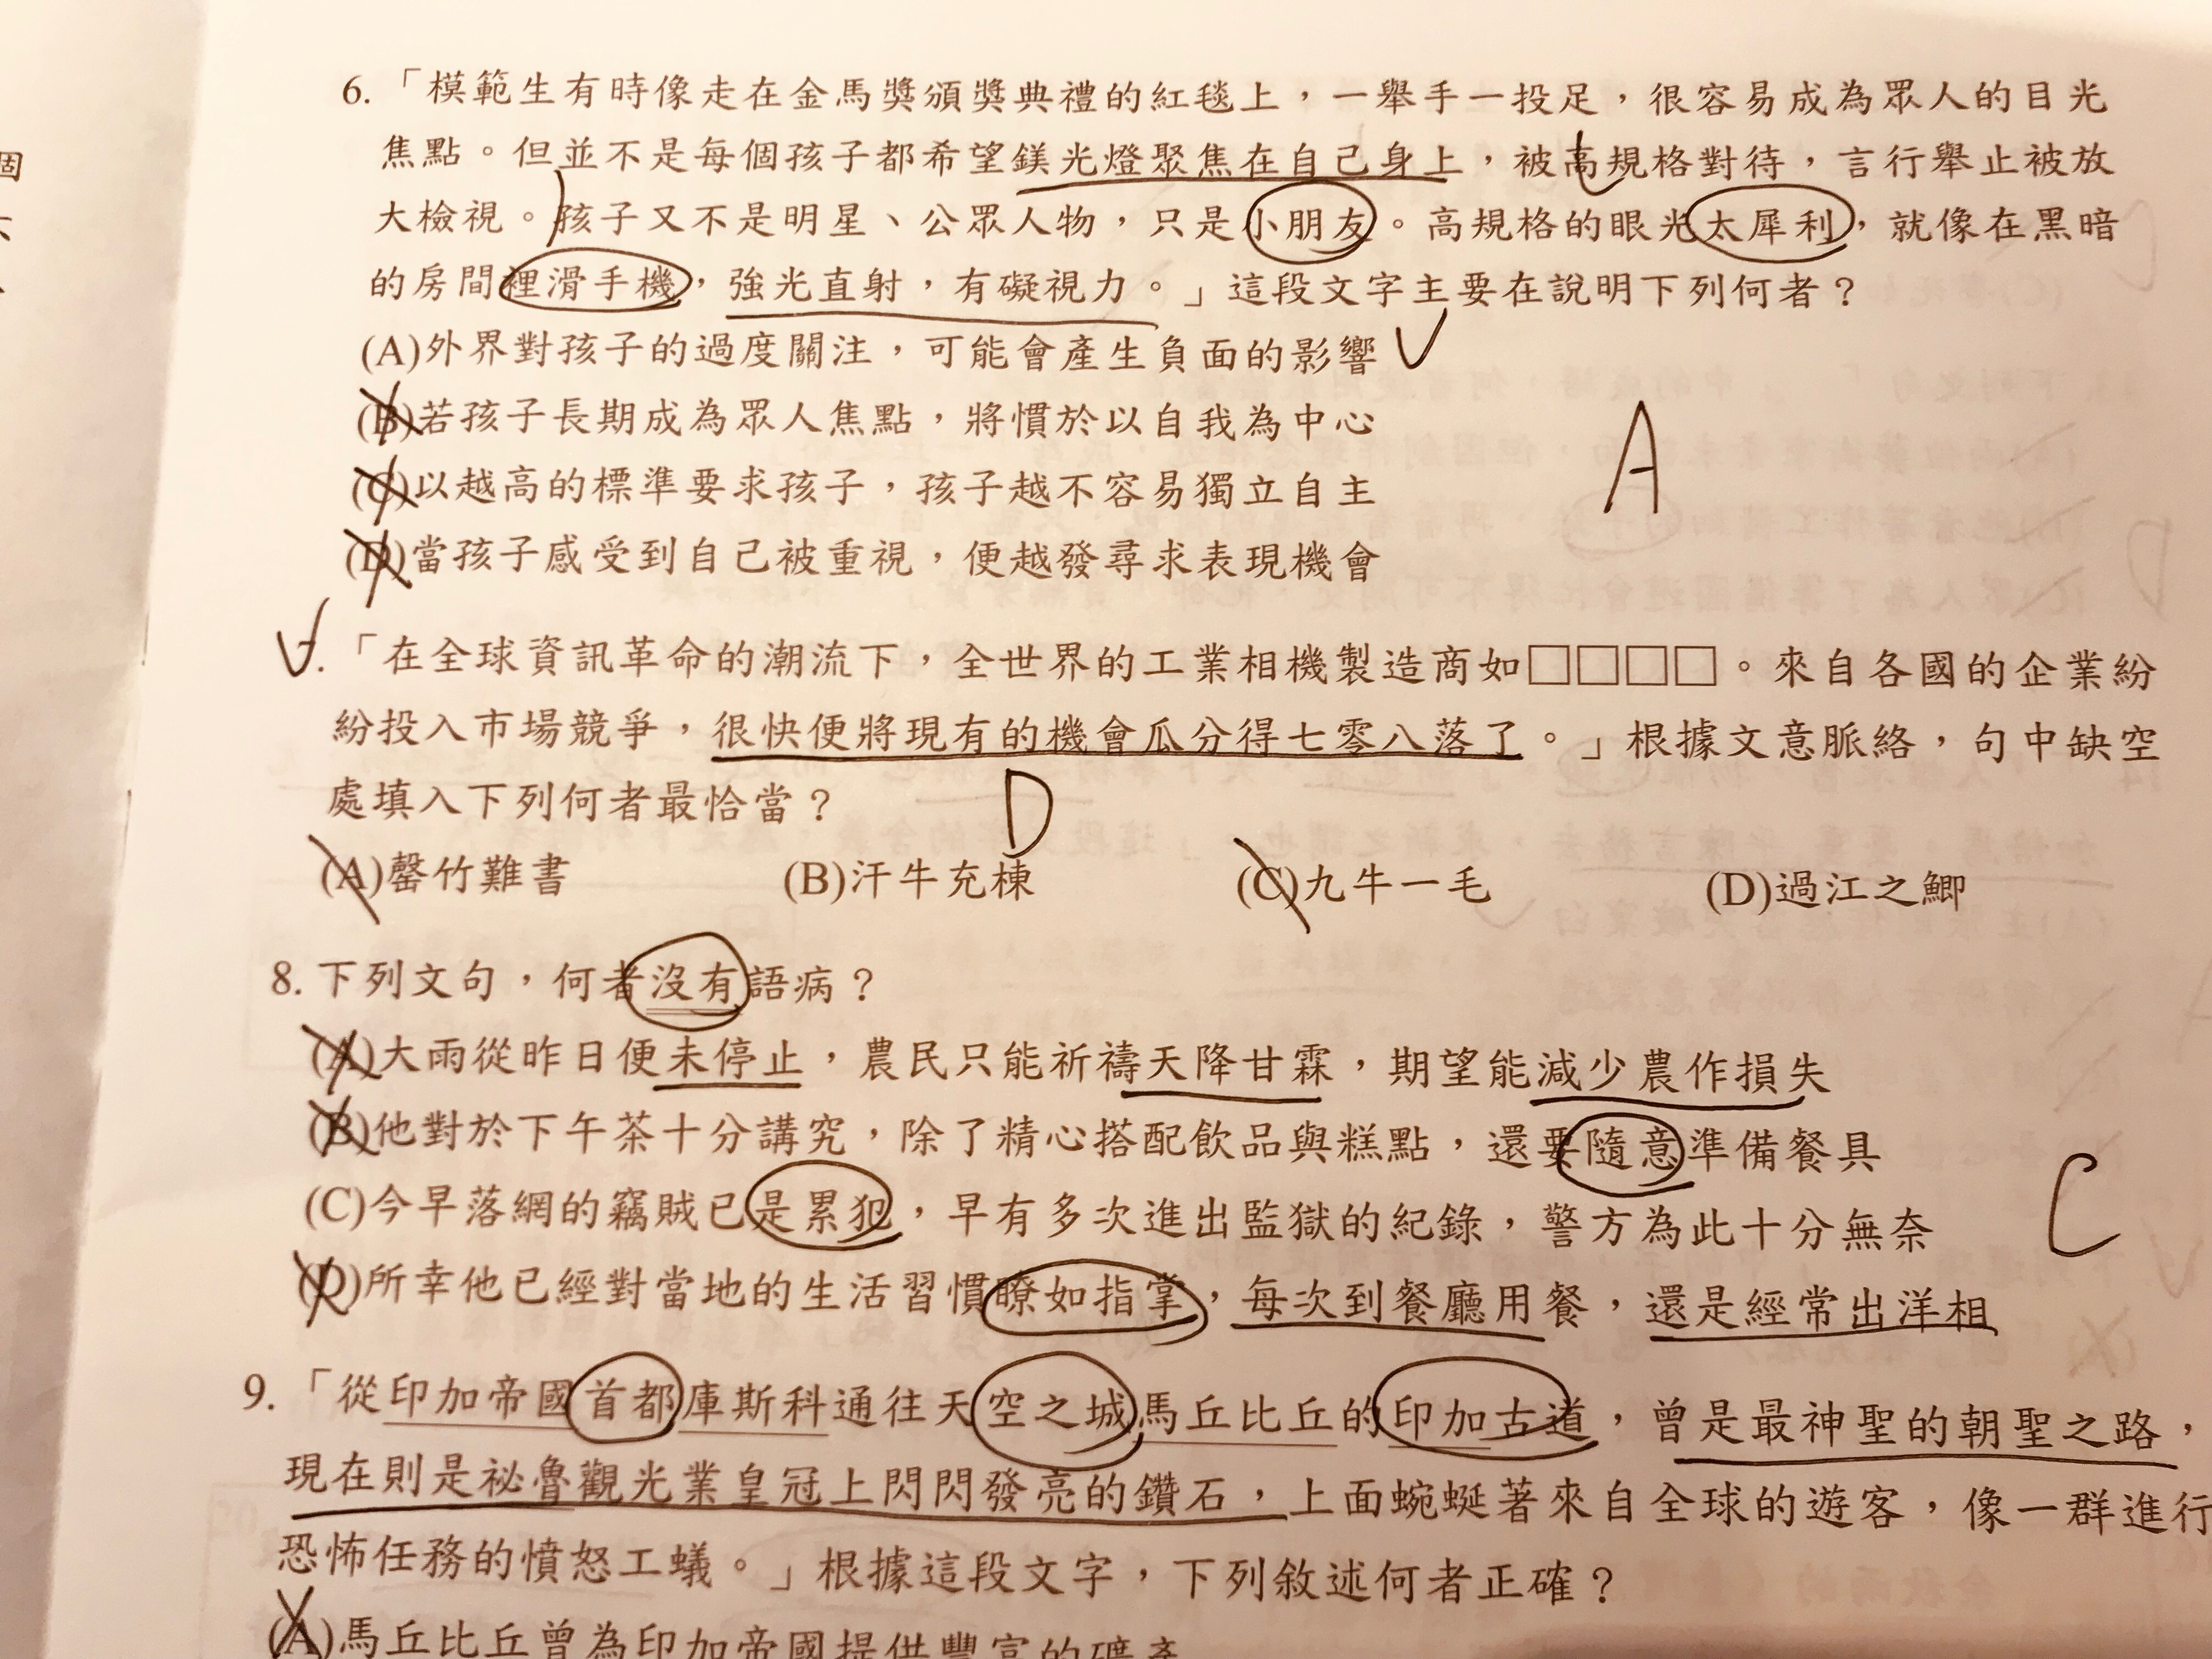 個
6. 「模範生有時像走在金馬獎頒獎典禮的紅毯上，一舉手一投足，很容易成為眾人的目光
焦點。但並不是每個孩子都希望鎂光燈聚焦在自己身上，被高規格對待，言行舉止被放
大檢視。孩子又不是明星、公眾人物，只是小朋友。高規格的眼光太犀利，就像在黑暗
的房間裡滑手機，強光直射，有礙視力。」這段文字主要在說明下列何者？
(A)外界對孩子的過度關注，可能會產生負面的影響
(B)若孩子長期成為眾人焦點，將慣於以自我為中心
A
(C)以越高的標準要求孩子，孩子越不容易獨立自主
(D)當孩子感受到自己被重視，便越發尋求表現機會
7. 「在全球資訊革命的潮流下，全世界的工業相機製造商如□□□□。來自各國的企業紛
紛投入市場競爭，很快便將現有的機會瓜分得七零八落了。」根據文意脈絡，句中缺空
處填入下列何者最恰當？
D
(A)罄竹難書 (B)汗牛充棟 (C)九牛一毛 (D)過江之鯽
8. 下列文句，何者沒有語病？
(A)大雨從昨日便未停止，農民只能祈禱天降甘霖，期望能減少農作損失
(B)他對於下午茶十分講究，除了精心搭配飲品與糕點，還要隨意準備餐具
(C)今早落網的竊賊已是累犯，早有多次進出監獄的紀錄，警方為此十分無奈
C
(D)所幸他已經對當地的生活習慣瞭如指掌，每次到餐廳用餐，還是經常出洋相
9. 「從印加帝國首都庫斯科通往天空之城馬丘比丘的印加古道，曾是最神聖的朝聖之路，
現在則是祕魯觀光業皇冠上閃閃發亮的鑽石，上面蜿蜒著來自全球的遊客，像一群進行
恐怖任務的憤怒工蟻。」根據這段文字，下列敘述何者正確？
(A)馬丘比丘曾為印加帝國提供豐富的礦產